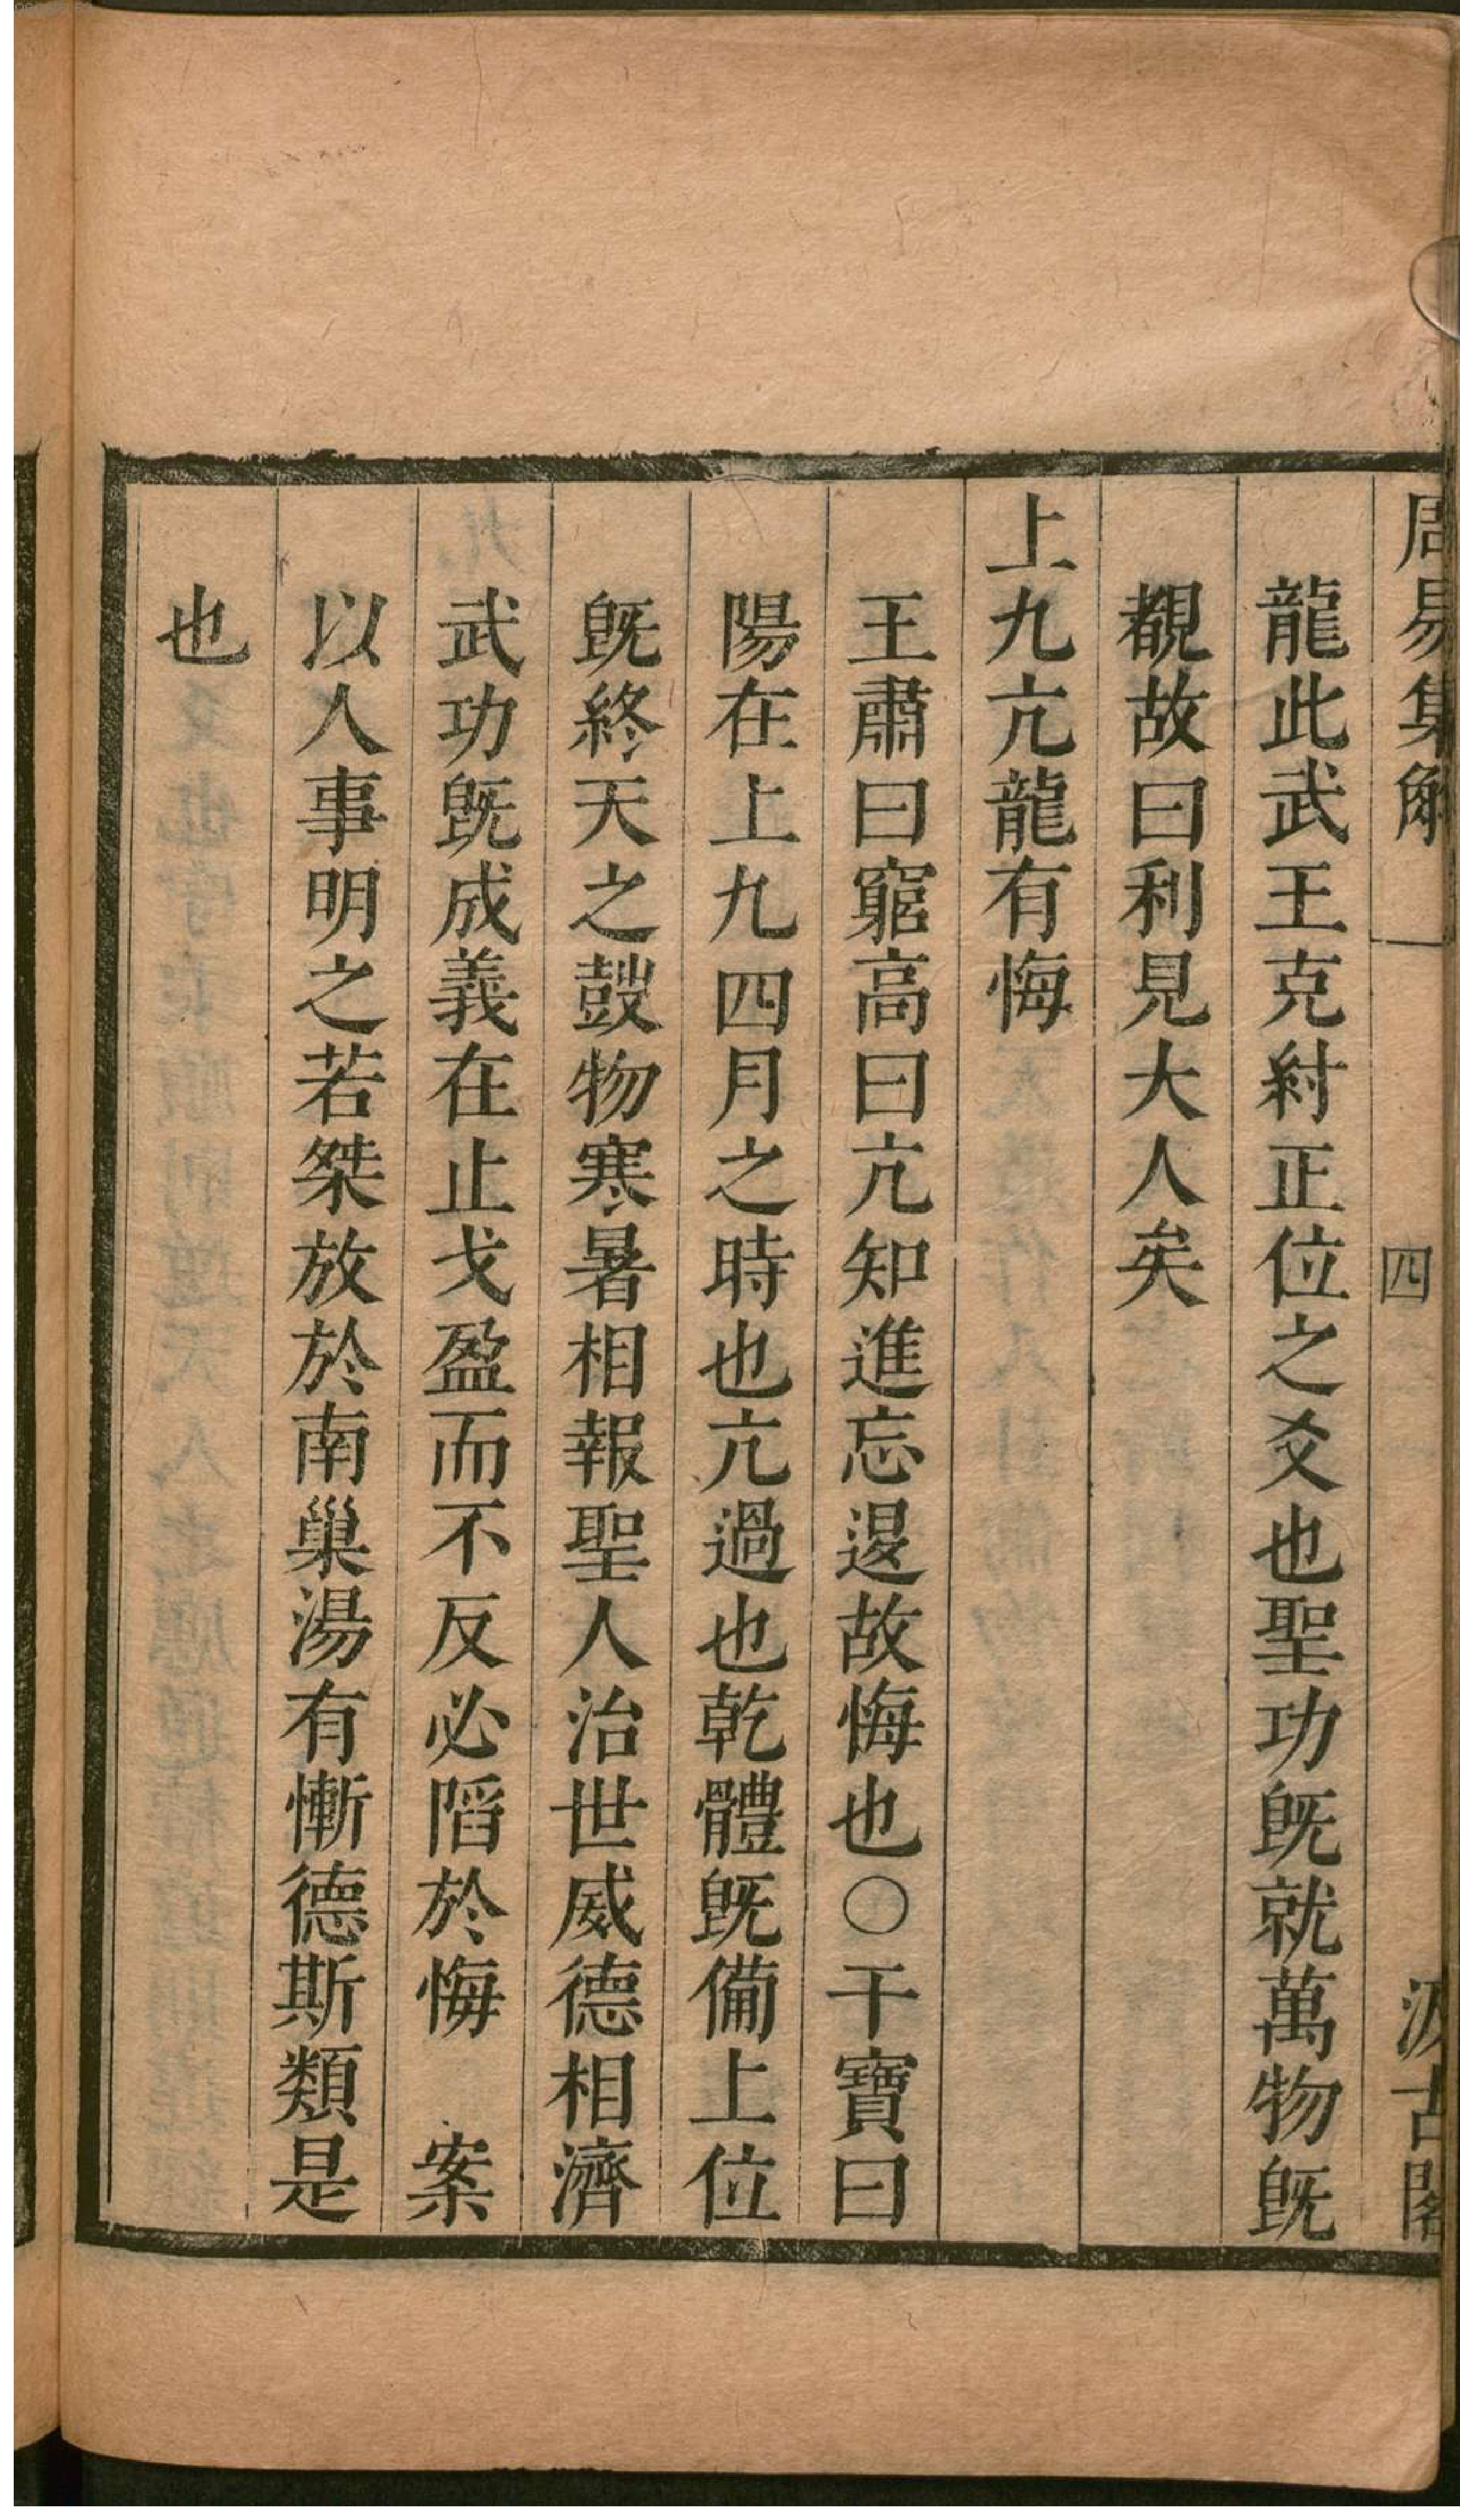 周易集解 一 四 汲古閣
龍此武王克紂正位之爻也聖功旣就萬物旣
覩故曰利見大人矣
上九亢龍有悔
王肅曰窮高曰亢知進忘退故悔也○干寶曰
陽在上九四月之時也亢過也乾體旣備上位
旣終天之鼓物寒暑相報聖人治世威德相濟
武功旣成義在止戈盈而不反必陷於悔　案
以人事明之若桀放於南巢湯有慚德斯類是
也